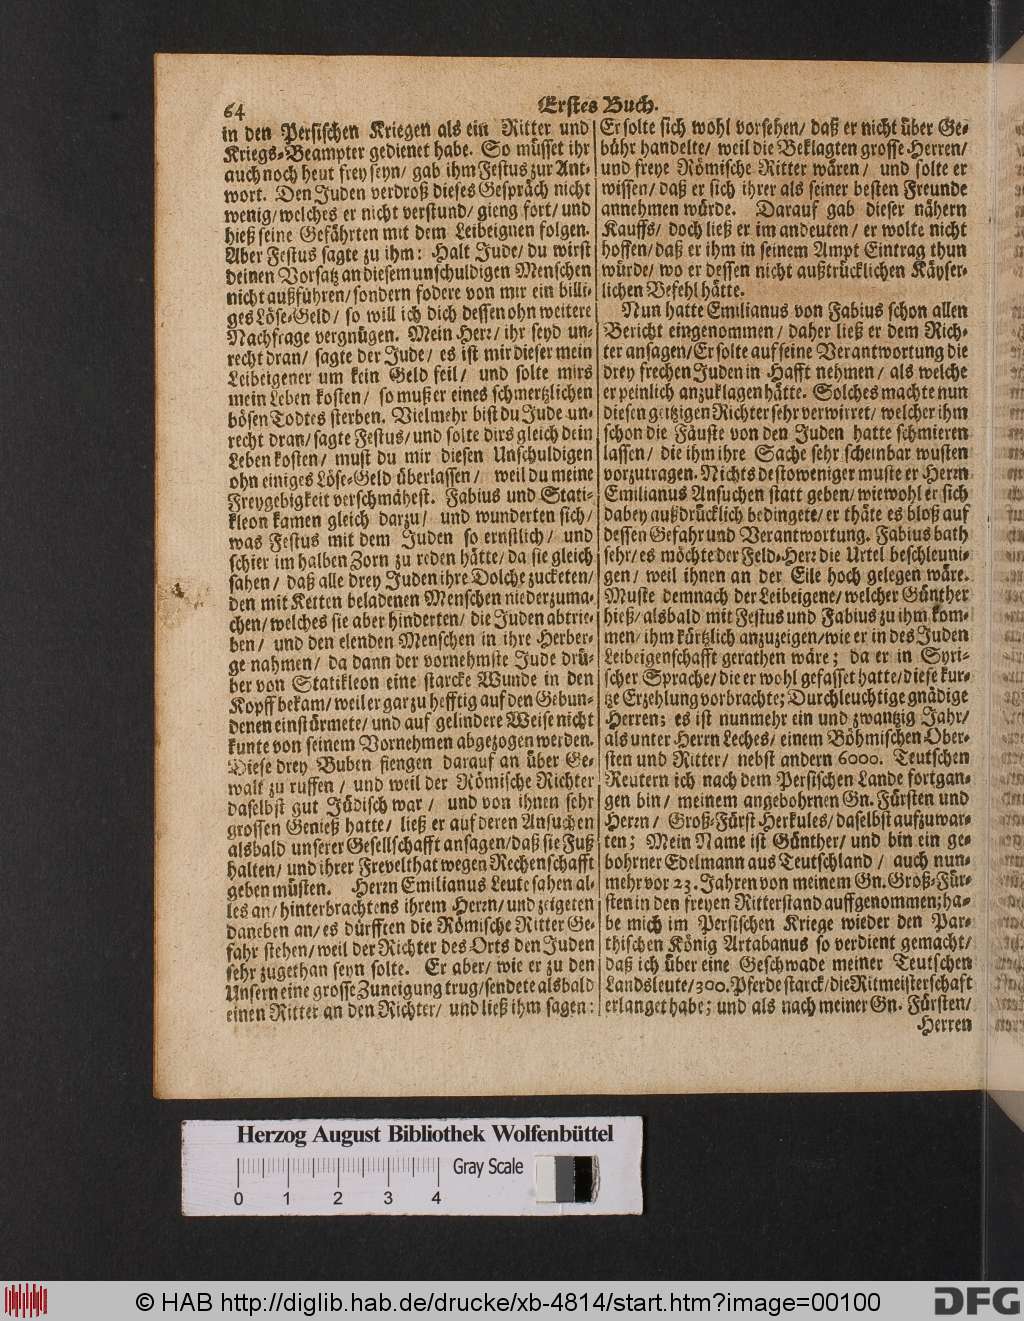 64
Erstes Buch.
in den Persischen Kriegen als ein Ritter und
Kriegs-Beampter gedienet habe. So müsset ihr
auch noch heut frey seyn/ gab ihm Festus zur Ant-
wort. Den Juden verdroß dieses Gespräch nicht
wenig/ welches er nicht verstund/ gieng fort/ und
hieß seine Gefährten mit dem Leibeignen folgen.
Aber Festus sagte zu ihm: Halt Jude/ du wirst
deinen Vorsatz an diesem unschuldigen Menschen
nicht außführen/ sondern fodere von mir ein billi-
ges Löse-Geld/ so will ich dich dessen ohn weitere
Nachfrage vergnügen. Mein Herr/ ihr seyd un-
recht dran/ sagte der Jude/ es ist mir dieser mein
Leibeigener um kein Geld feil/ und solte mirs
mein Leben kosten/ so muß er eines schmertzlichen
bösen Todtes sterben. Vielmehr bist du Jude un-
recht dran/ sagte Festus/ und solte dirs gleich dein
Leben kosten/ must du mir diesen Unschuldigen
ohn einiges Löse-Geld überlassen/ weil du meine
Freygebigkeit verschmähest. Fabius und Stati-
kleon kamen gleich darzu/ und wunderten sich/
was Festus mit dem Juden so ernstlich/ und
schier im halben Zorn zu reden hätte/ da sie gleich
sahen/ daß alle drey Juden ihre Dolche zucketen/
den mit Ketten beladenen Menschen niederzuma-
chen/ welches sie aber hinderten/ die Juden abtrie-
ben/ und den elenden Menschen in ihre Herber-
ge nahmen/ da dann der vornehmste Jude drü-
ber von Statikleon eine starcke Wunde in den
Kopff bekam/ weil er gar zu hefftig auf den Gebun-
denen einstürmete/ und auf gelindere Weise nicht
kunte von seinem Vornehmen abgezogen werden.
Diese drey Buben fiengen darauf an über Ge-
walt zu ruffen/ und weil der Römische Richter
daselbst gut Jüdisch war/ und von ihnen sehr
grossen Genieß hatte/ ließ er auf deren Ansuchen
alsbald unserer Gesellschafft ansagen/ daß sie Fuß
halten/ und ihrer Frevelthat wegen Rechenschafft
geben müsten. Herrn Emilianus Leute sahen al-
les an/ hinterbrachtens ihrem Herrn/ und zeigeten
daneben an/ es dürfften die Römische Ritter Ge-
fahr stehen/ weil der Richter des Orts den Juden
sehr zugethan seyn solte. Er aber/ wie er zu den
Unsern eine grosse Zuneigung trug/ sendete alsbald
einen Ritter an den Richter/ und ließ ihm sagen:
Er solte sich wohl vorsehen/ daß er nicht über Ge-
bühr handelte/ weil die Beklagten grosse Herren/
und freye Römische Ritter wären/ und solte er
wissen/ daß er sich ihrer als seiner besten Freunde
annehmen würde. Darauf gab dieser nähern
Kauffs/ doch ließ er im andeuten/ er wolte nicht
hoffen/ daß er ihm in seinem Ampt Eintrag thun
würde/ wo er dessen nicht außtrücklichen Käyser-
lichen Befehl hätte.
Nun hatte Emilianus von Fabius schon allen
Bericht eingenommen/ daher ließ er dem Rich-
ter ansagen/ Er solte auf seine Verantwortung die
drey frechen Juden in Hafft nehmen/ als welche
er peinlich anzuklagen hätte. Solches machte nun
diesen geitzigen Richter sehr verwirret/ welcher ihm
schon die Fäuste von den Juden hatte schmieren
lassen/ die ihm ihre Sache sehr scheinbar wusten
vorzutragen. Nichts destoweniger muste er Herrn
Emilianus Ansuchen statt geben/ wiewohl er sich
dabey außdrücklich bedingete/ er thäte es bloß auf
dessen Gefahr und Verantwortung. Fabius bath
sehr/ es möchte der Feld-Herr die Urtel beschleuni-
gen/ weil ihnen an der Eile hoch gelegen wäre.
Muste demnach der Leibeigene/ welcher Günther
hieß/ alsbald mit Festus und Fabius zu ihm kom-
men/ ihm kürtzlich anzuzeigen/ wie er in des Juden
Leibeigenschafft gerathen wäre; da er in Syri-
scher Sprache/ die er wohl gefasset hatte/ diese kur-
tze Erzehlung vorbrachte; Durchleuchtige gnädige
Herren; es ist nunmehr ein und zwantzig Jahr/
als unter Herrn Leches/ einem Böhmischen Ober-
sten und Ritter/ nebst andern 6000. Teutschen
Reutern ich nach dem Persischen Lande fortgan-
gen bin/ meinem angebohrnen Gn. Fürsten und
Herrn/ Groß-Fürst Herkules/ daselbst aufzuwar-
ten; Mein Name ist Günther/ und bin ein ge-
bohrner Edelmann aus Teutschland/ auch nun-
mehr vor 23. Jahren von meinem Gn. Groß-Für-
sten in den freyen Ritterstand auffgenommen; ha-
be mich im Persischen Kriege wieder den Par-
thischen König Artabanus so verdient gemacht/
daß ich über eine Geschwade meiner Teutschen
Landsleute/ 300. Pferde starck/ die Ritmeisterschaft
erlanget habe; und als nach meiner Gn. Fürsten/
Herren
Herzog August Bibliothek Wolfenbüttel
Gray Scale
0 1 2 3 4
© HAB http://diglib.hab.de/drucke/xb-4814/start.htm?image=00100
DFG